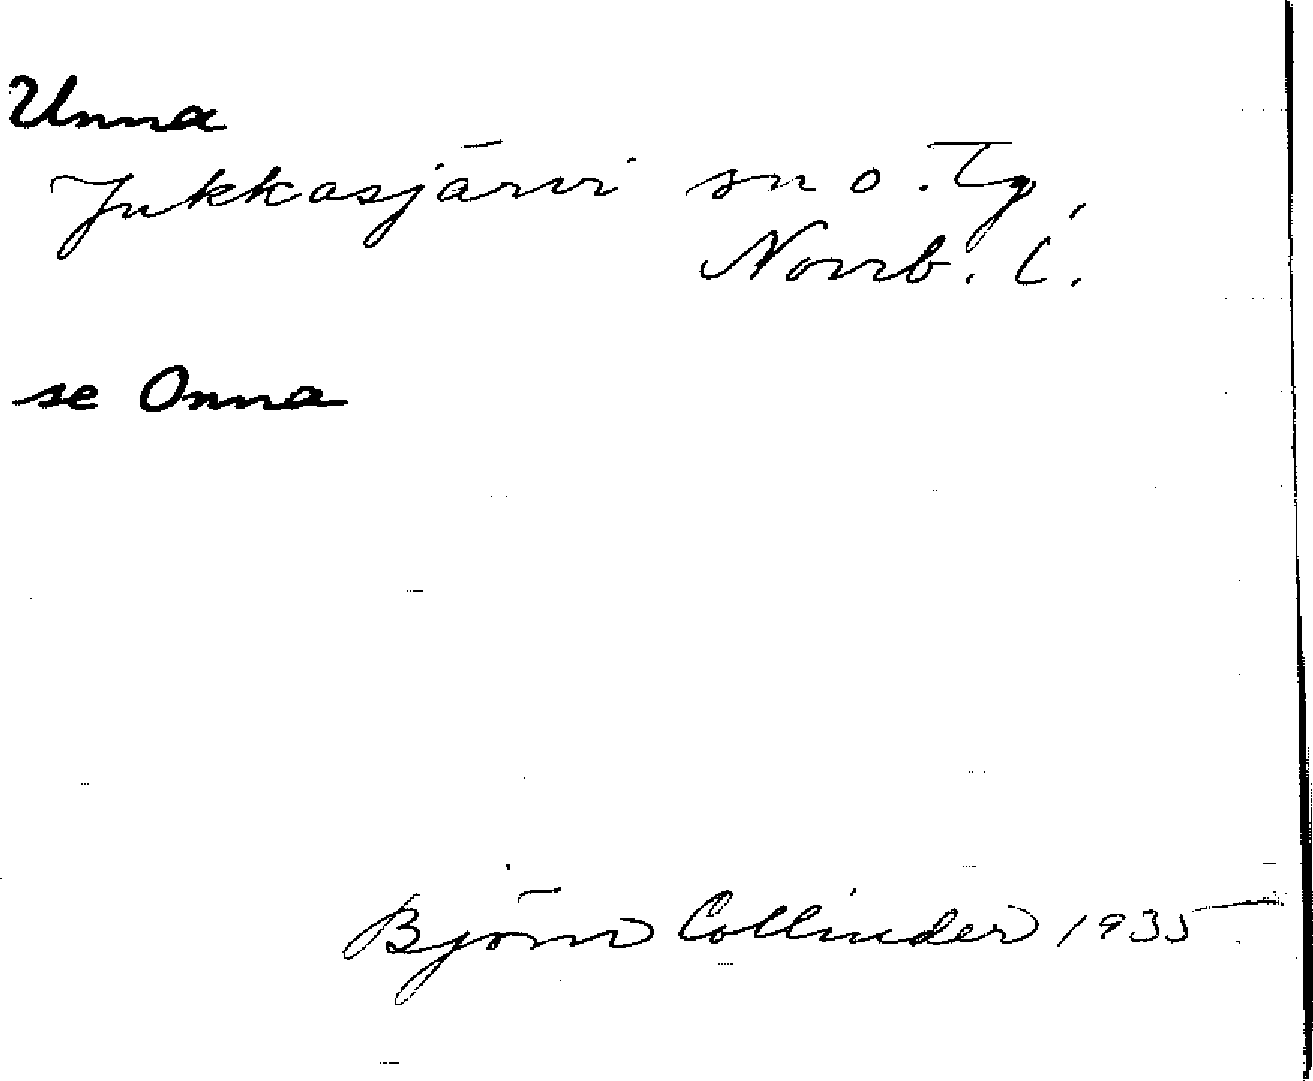 Unna
Jukkasjärvi sn o. Tg,
Norrb. l.
se Onna
Björn Collinder 1935